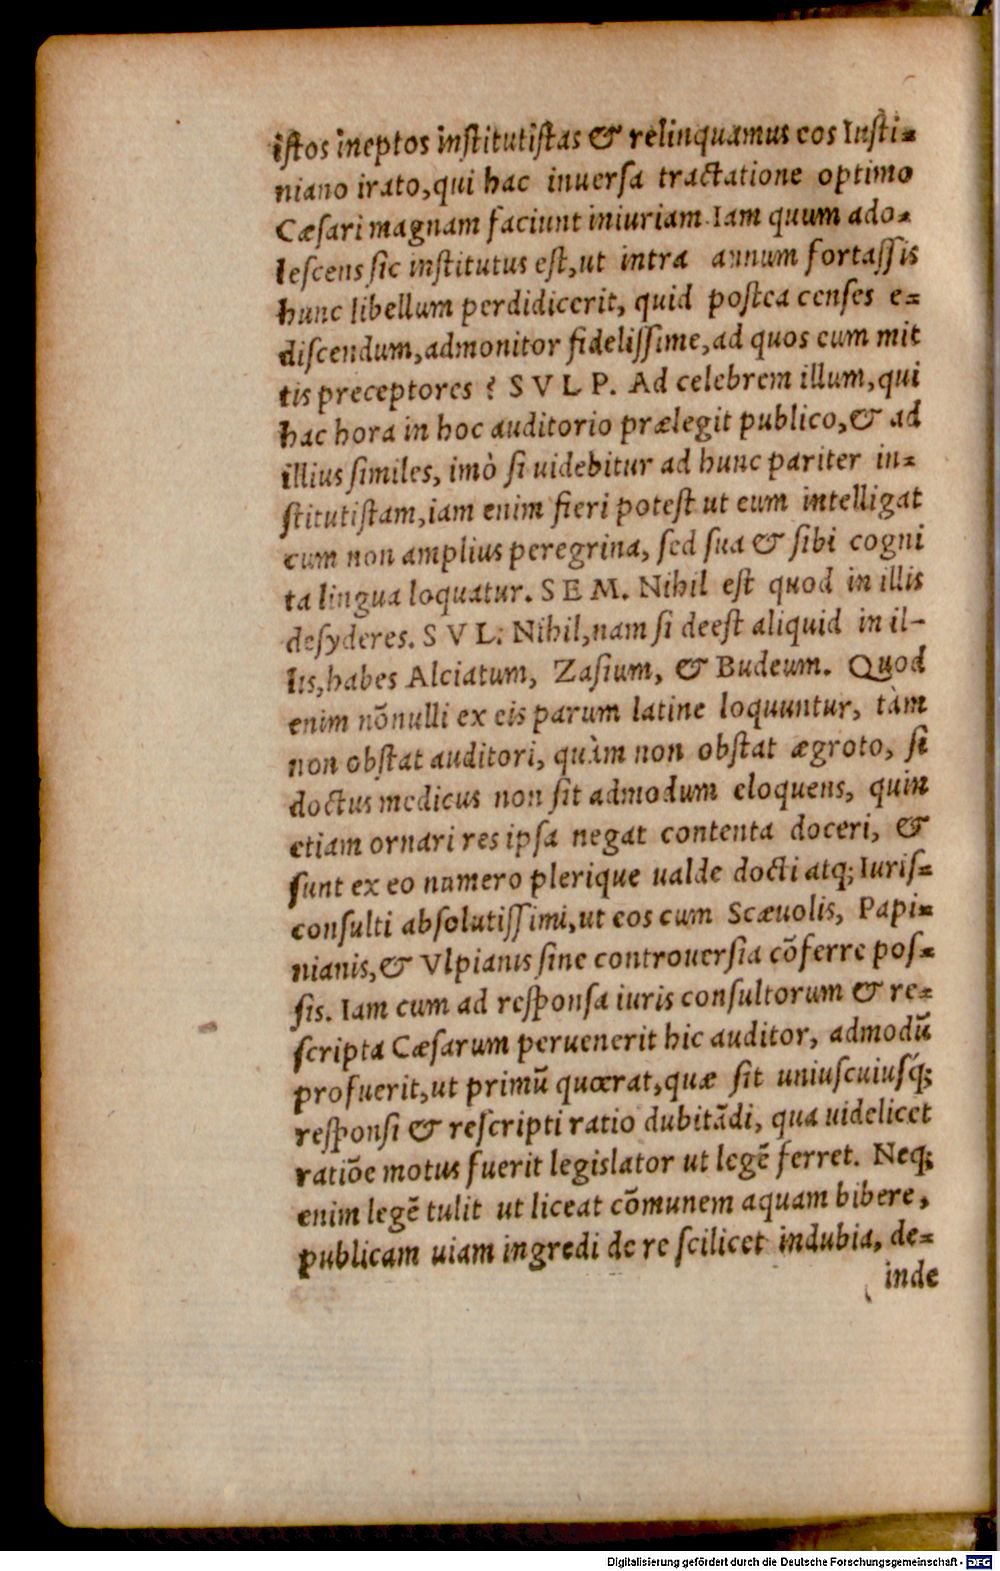 istos ineptos institutistas & relinquamus eos Iusti=
niano irato, qui hac inuersa tractatione optimo
Cæsari magnam faciunt iniuriam. Iam quum ado=
lescens sic institutus est, ut intra annum fortassis
hunc libellum perdidicerit, quid postea censes e=
discendum, admonitor fidelissime, ad quos eum mit
tis preceptores? S V L P. Ad celebrem illum, qui
hac hora in hoc auditorio prælegit publico, & ad
illius similes, imò si uidebitur ad hunc pariter in=
stitutistam, iam enim fieri potest ut eum intelligat
cum non amplius peregrina, sed sua & sibi cogni
ta lingua loquatur. S E M. Nihil est quod in illis
desyderes. S V L. Nihil, nam si deest aliquid in il-
lis, habes Alciatum, Zasium, & Budeum. Quod
enim nõnulli ex eis parum latine loquuntur, tàm
non obstat auditori, quàm non obstat ægroto, si
doctus medicus non sit admodum eloquens, quin
etiam ornari res ipsa negat contenta doceri, &
sunt ex eo numero plerique ualde docti atq; Iuris=
consulti absolutissimi, ut eos cum Scæuolis, Papi=
nianis, & Vlpianis sine controuersia cõferre pos=
sis. Iam cum ad responsa iuris consultorum & re=
scripta Cæsarum peruenerit hic auditor, admodũ
profuerit, ut primũ quærat, quæ sit uniuscuiusq́;
responsi & rescripti ratio dubitãdi, qua uidelicet
ratiõe motus fuerit legislator ut legẽ ferret. Neq;
enim legẽ tulit ut liceat cõmunem aquam bibere,
publicam uiam ingredi de re scilicet indubia, de=
inde
Digitalisierung gefördert durch die Deutsche Forschungsgemeinschaft - DFG